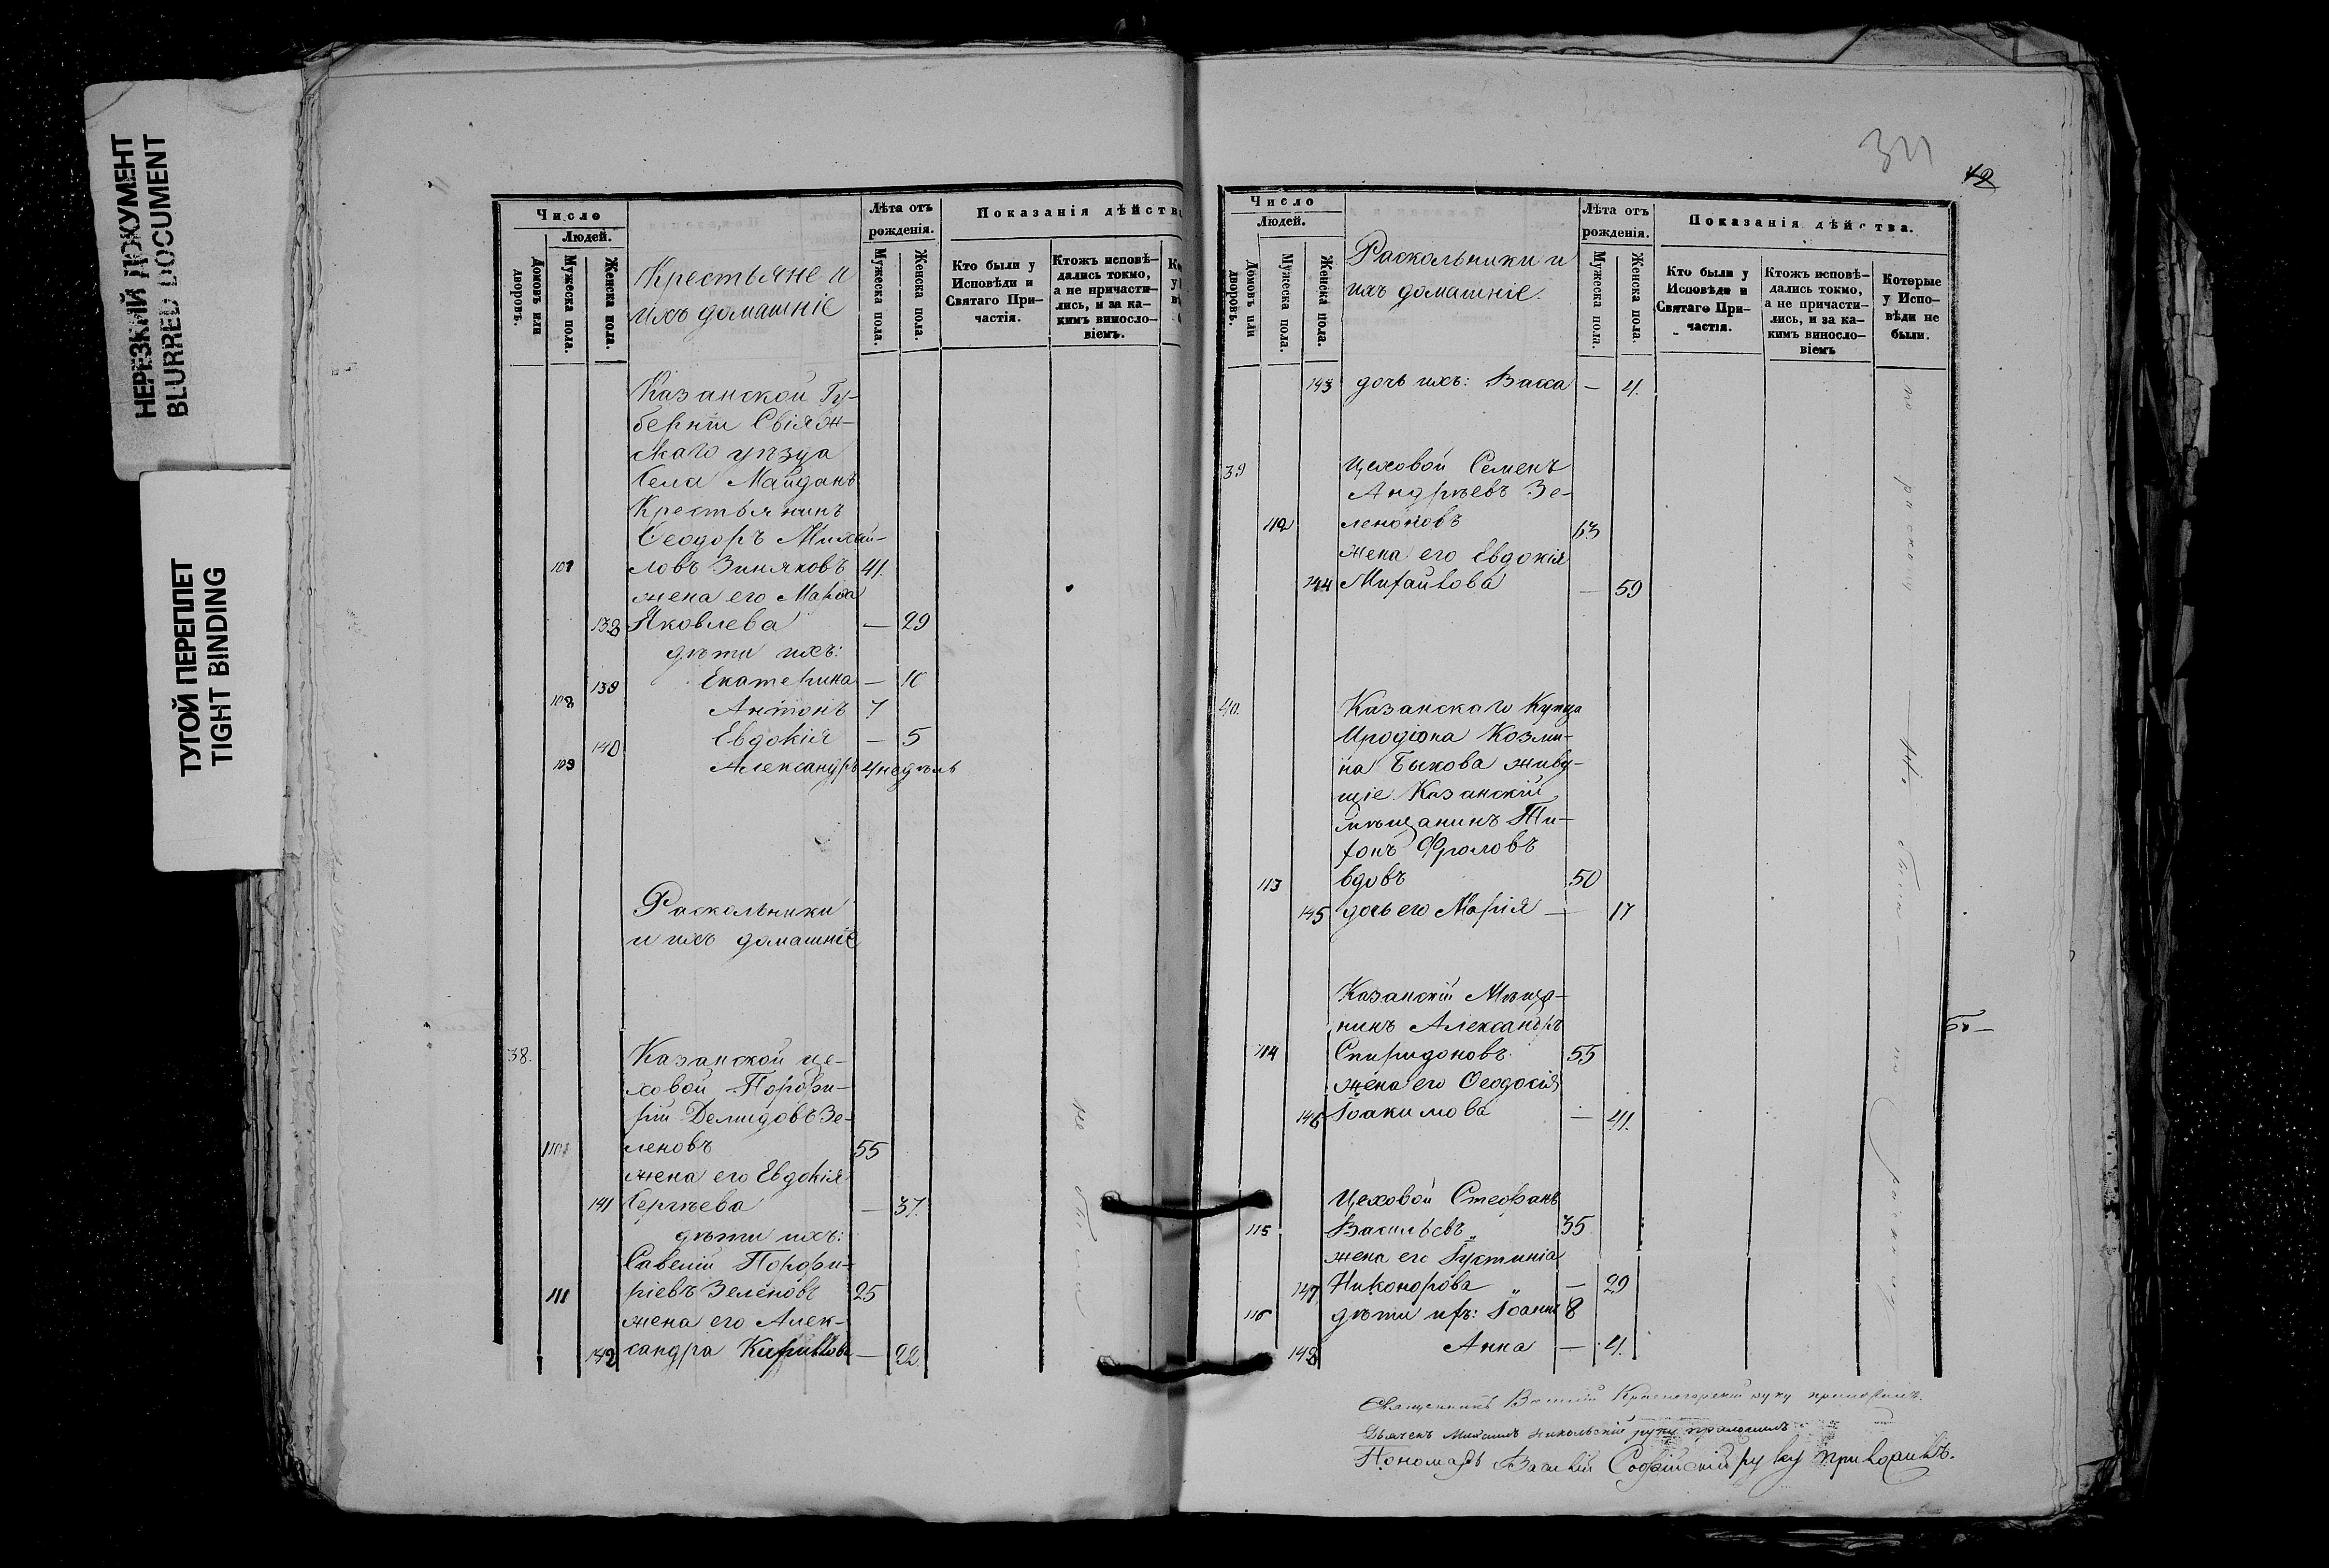 НЕРЕЗКИЙ ДОКУМЕНТ
BLURRED DOCUMENT
ТУГОЙ ПЕРЕПЛЕТ
TIGHT BINDING
Число
Людей.
Домовъ или дворовъ.
Мужеска пола.
Женска пола.
Крестьяне и
ихъ домашніе
Лѣта отъ
рожденія.
Мужеска пола.
Женска пола.
Показанія дѣйств
Кто были у
Исповѣди и
Святаго При-
частія.
Ктожъ исповѣ-
дались токмо,
а не причасти-
лись, и за ка-
кимъ винсло-
віемъ.
Казанской Гу-
берніи Свіяж-
скаго уѣзда
Села Майданъ
Крестьянинъ
Ѳеодоръ Михай-
107 ловъ Зиняковъ 41.
жена его Марѳа
138 Яковлева — 29
дѣти ихъ:
139 Екатерина — 10
108 Антонъ 7
140 Евдокія — 5
109 Александръ 4 недѣль
Раскольники
и ихъ домашніе
38. Казанской це-
ховой Порфи-
рій Демидовъ Зе-
110 леновъ 55
жена его Евдокія
141 Сергѣева — 37.
дѣти ихъ:
Савелій Порфи-
111 ріевъ Зеленовъ 25
жена его Алек-
142 сандра Кирилова — 22.
не были
12
Число
Людей.
Домовъ или дворовъ.
Мужеска пола.
Женска пола.
Раскольники и
ихъ домашніе.
Лѣта отъ
рожденія.
Мужеска пола.
Женска пола.
Показанія дѣйства.
Кто были у
Исповѣди и
Святаго При-
частія.
Ктожъ исповѣ-
дались токмо,
а не причасти-
лись, и за ка-
кимъ винсло-
віемъ
Которые
у Испо-
вѣди не
были.
143 дочь ихъ: Васса — 4.
39 Цеховой Семенъ
Андрѣевъ Зе-
112 леновъ 63
жена его Евдокія
144 Михайлова — 59
40. Казанскаго Купца
Иродіона Козми-
на Быкова живу-
щіе Казанскій
мѣщанинъ Ти-
хонъ Фроловъ
113 вдовъ 50
145 дочь его Марія — 17
Казанскій Мѣща-
нинъ Александръ
114 Спиридоновъ 55
жена его Ѳеодосія
146 Іоакимова — 41.
Цеховой Стефанъ
115 Васильевъ 35
жена его Іустинія
147 Никонорова — 29
116 дѣти ихъ: Іоаннъ 8
148 Анна — 4.
по расколу не были по расколу
Священникъ Василій Красногорскій руку приложилъ.
Дьячекъ Михаилъ Никольскій руку приложилъ
Пономарь Василій Софійскій руку приложилъ.